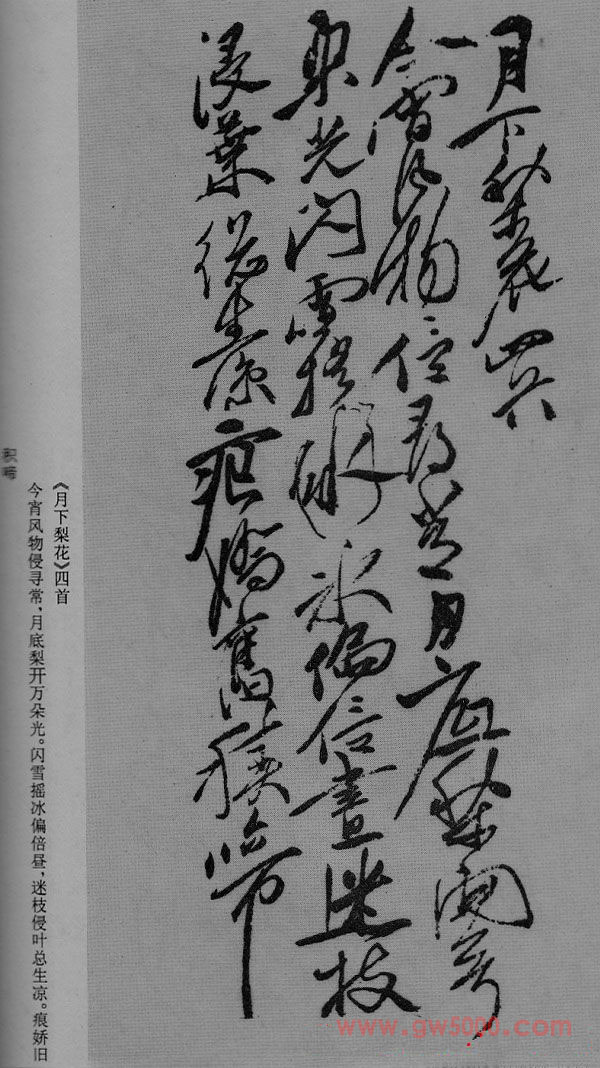 月下梨花四首
今宵風物侵尋常月底梨開萬
朵光閃雪搖冰偏倍晝迷枝
侵葉總生涼痕嬌舊積啼
《月下梨花》四首
今宵风物侵寻常，月底梨开万朵光。闪雪摇冰偏倍昼，迷枝侵叶总生凉。痕娇旧
积啼
www.gw5000.com